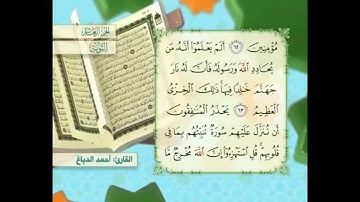 الجزء العاشر
التوبة
مُؤْمِنِينَ ٦٢ أَلَمْ يَعْلَمُوٓا۟ أَنَّهُۥ مَن
يُحَادِدِ ٱللَّهَ وَرَسُولَهُۥ فَأَنَّ لَهُۥ نَارَ
جَهَنَّمَ خَٰلِدًا فِيهَا ذَٰلِكَ ٱلْخِزْىُ
ٱلْعَظِيمُ ٦٣ يَحْذَرُ ٱلْمُنَٰفِقُونَ
أَن تُنَزَّلَ عَلَيْهِمْ سُورَةٌ تُنَبِّئُهُم بِمَا فِى
قُلُوبِهِمْ قُلِ ٱسْتَهْزِءُوٓا۟ إِنَّ ٱللَّهَ مُخْرِجٌ مَّا
القارئ: أحمد الدباغ